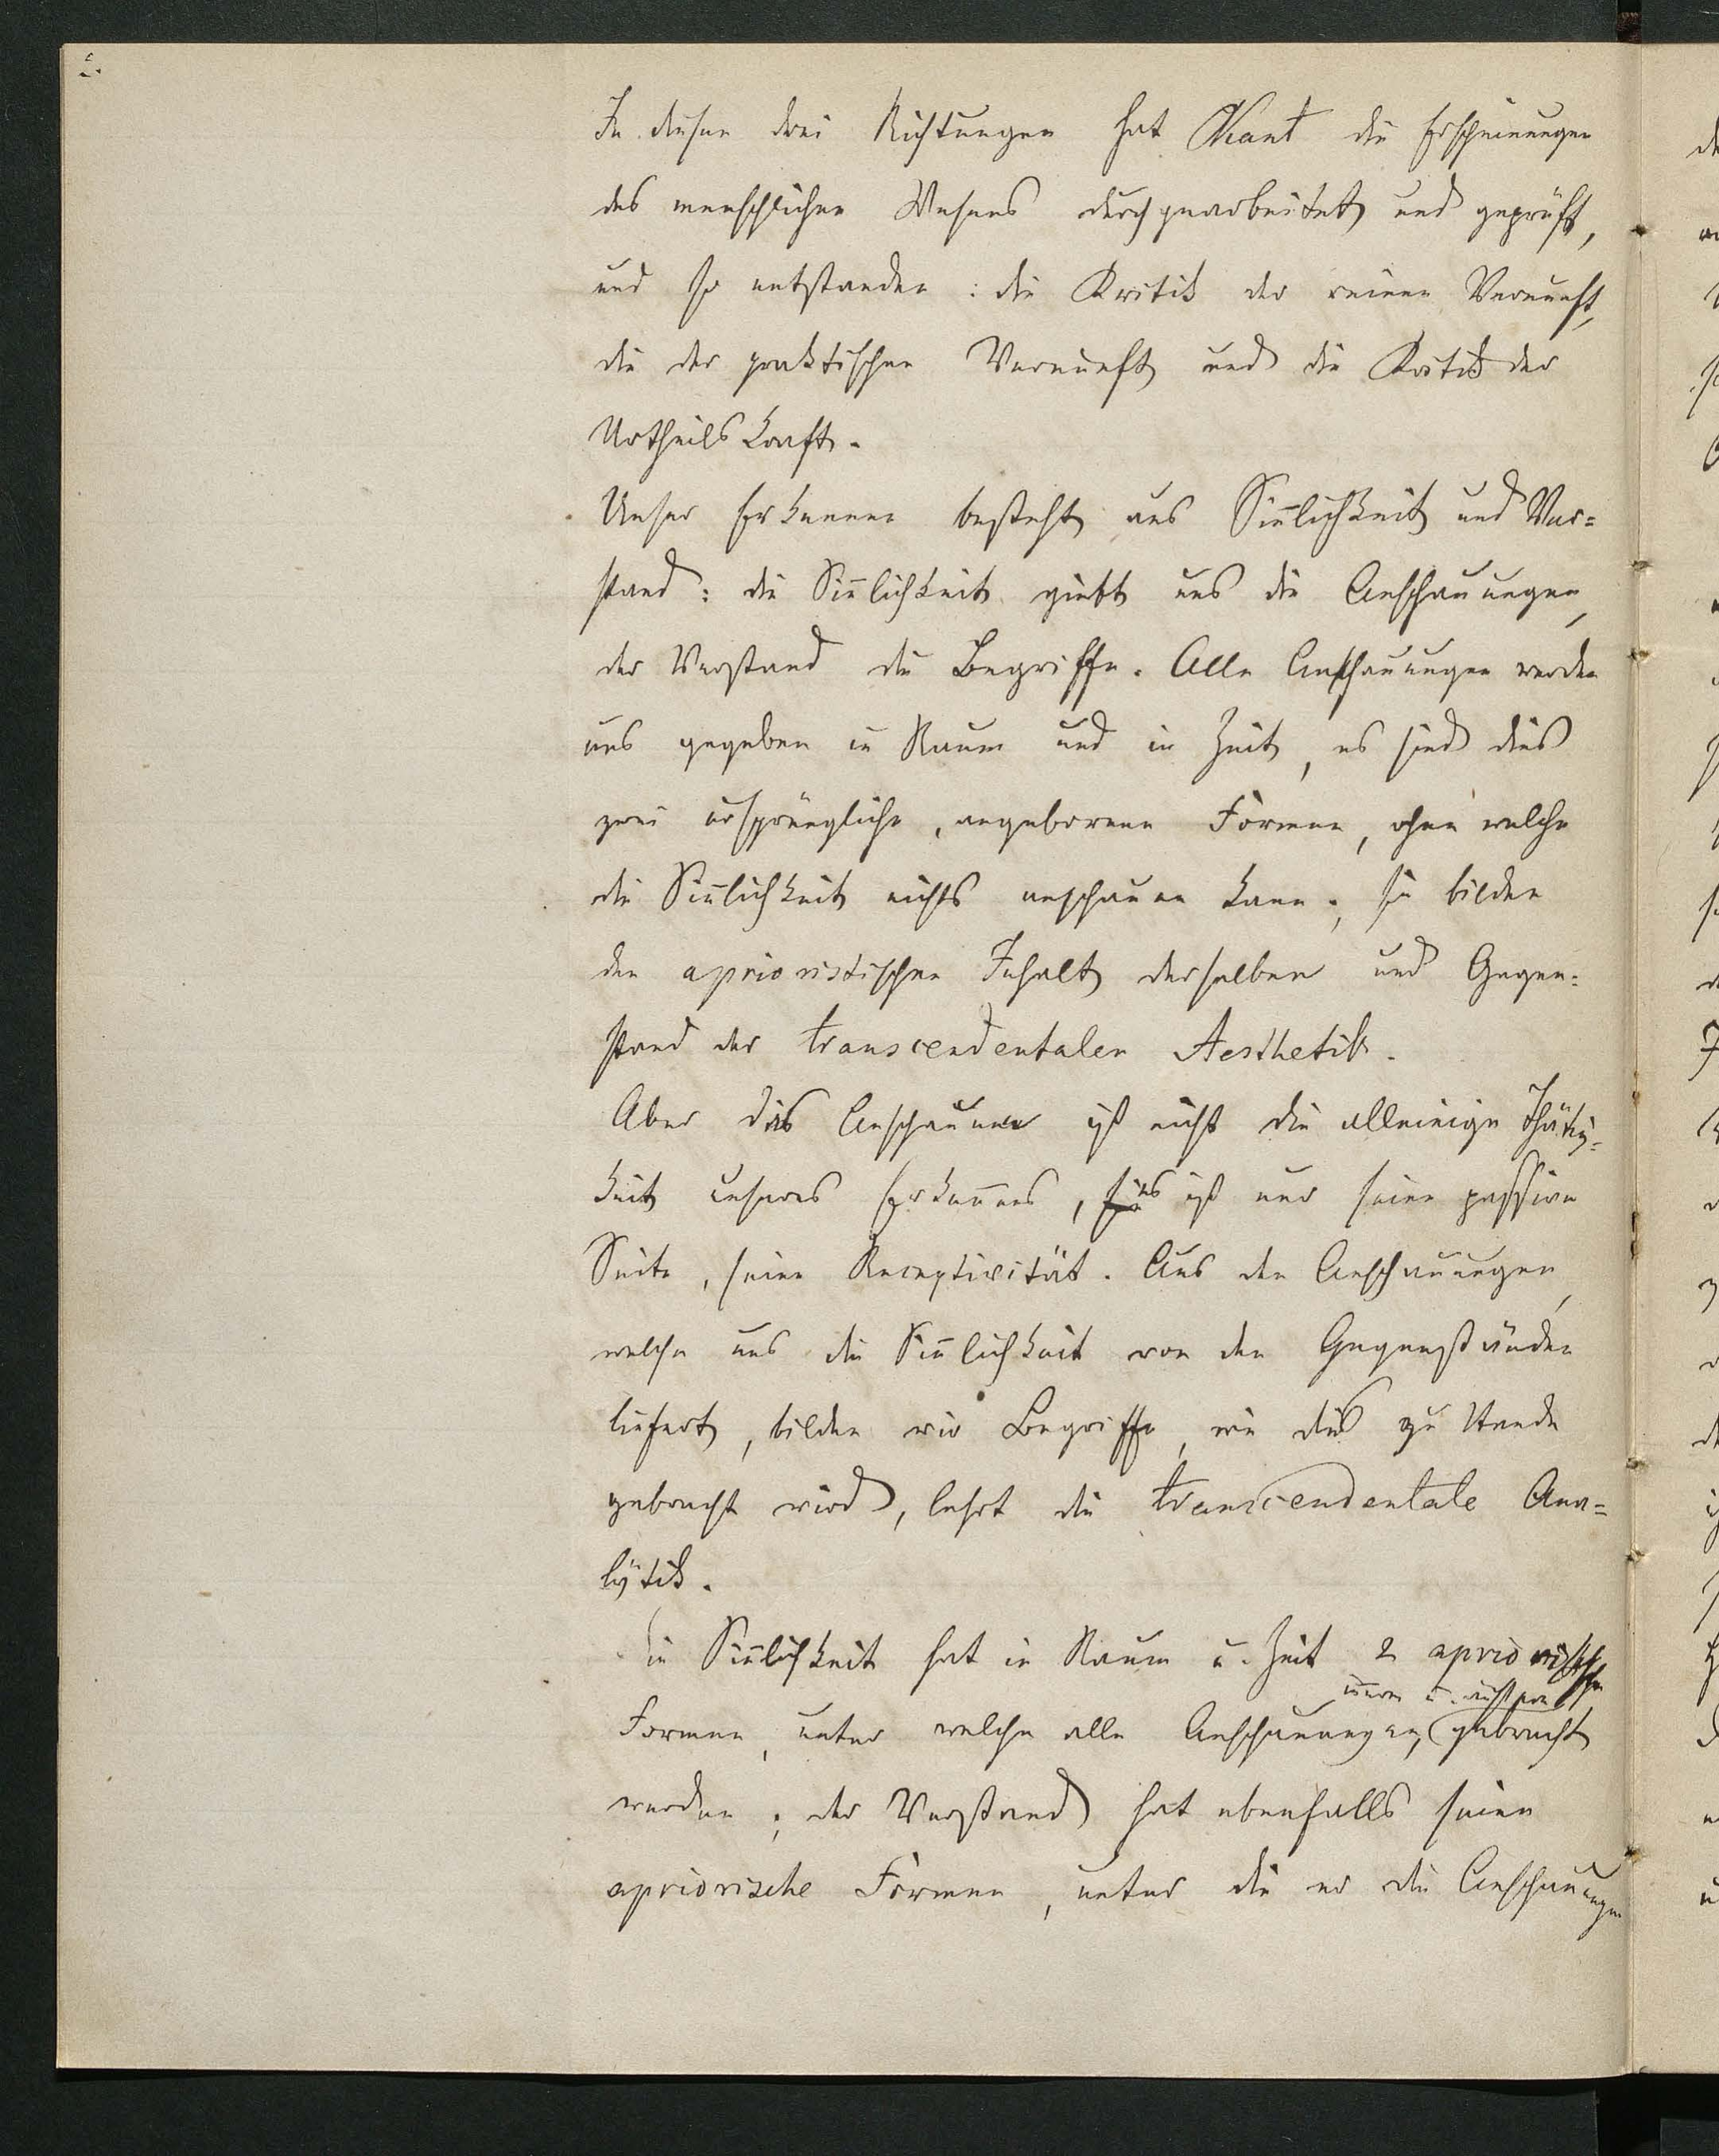 In diesen drei Richtungen hat Kant die Erscheinungen
des menschlichen Wesens durchgearbeitet und geprüft,
und so entstanden: die Kritik der reinen Vernunft,
die der praktischen Vernunft und die Kritik der
Urtheilskraft.
Unser Erkennen besteht aus Siñlichkeit und Ver=
stand: die Siñlichkeit giebt uns die Anschauungen,
der Verstand die Begriffe. Alle Anschauungen werden
uns gegeben in Raum und in Zeit, es sind dies
zwei ursprüngliche, angeborene Formen, ohne welche
die Siñlichkeit nichts anschauen kann; sie bilden
den aprioristischen Inhalt derselben und Gegen=
stand der transcendentalen Aesthetik.
Aber das Anschauen ist nicht die alleinige Thätig=
keit unseres Erkeñens, es ist nur seine passive
Seite, seine Receptivität. Aus den Anschauungen,
welche uns die Siñlichkeit von den Gegenständen
liefert, bilden wir Begriffe, wie dies zu Stande
gebracht wird, lehrt die transcendentale Ana=
lÿtik.
Die Siñlichkeit hat in Raum u. Zeit 2 apriorische
u.
Formen, unter welche alle Anschauungen gebracht
werden; der Verstand hat ebenfalls seine
apriorische Formen, unter die er die Anschauungen